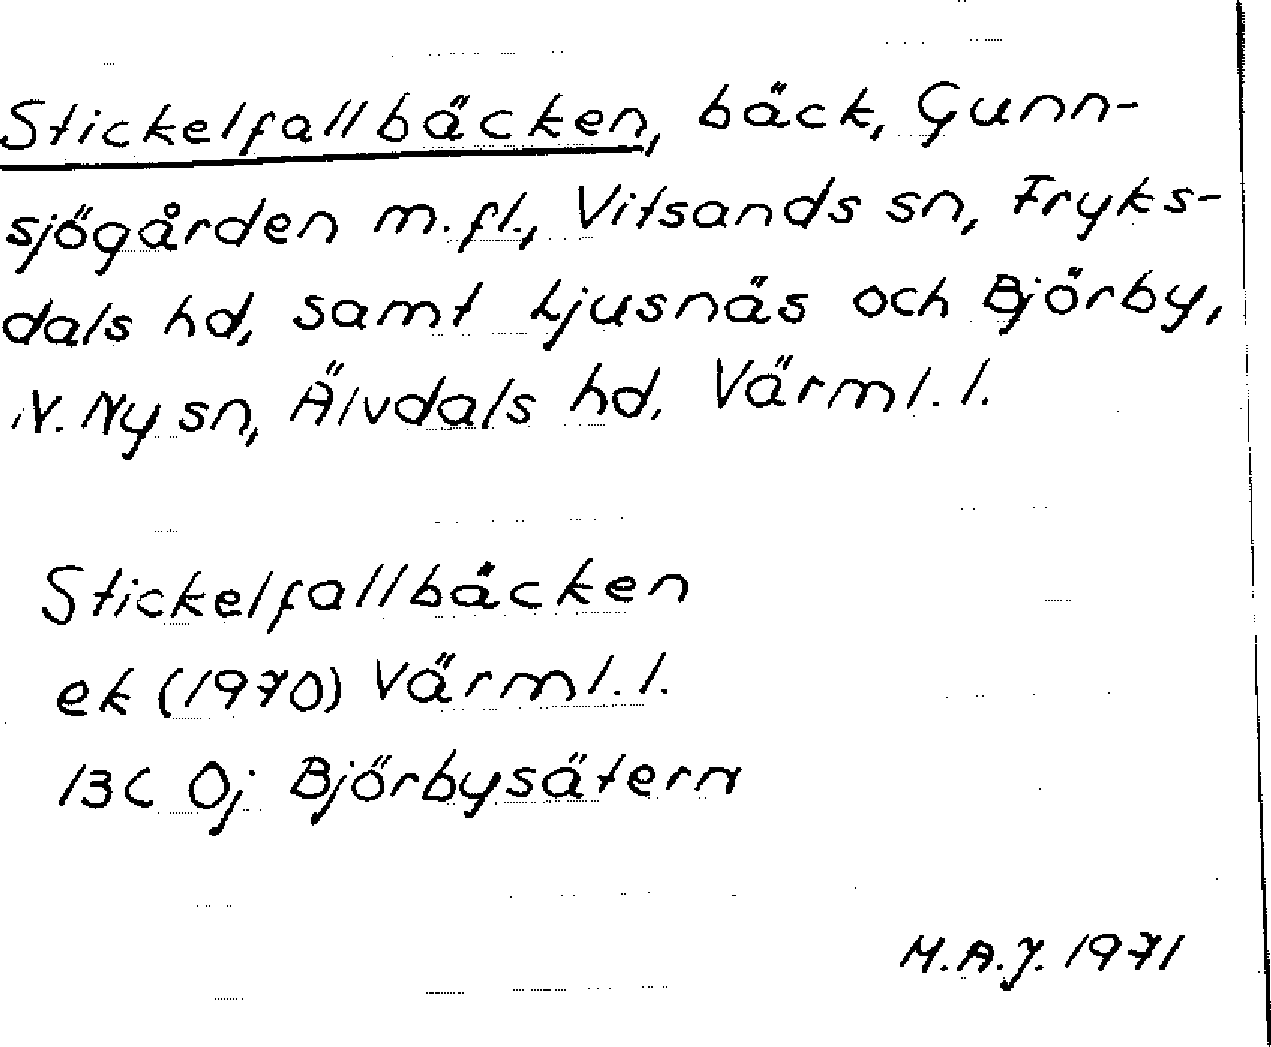 Stickelfallbäcken, bäck, Gunn-
sjögården m.fl., Vitsands sn, Fryks-
dals hd, samt Ljusnäs och Björby,
N. Ny sn, Älvdals hd. Värml. l.
Stickelfallbäcken
ek (1970) Värml. l.
13C 0j Björbysätern
M.A.J. 1971